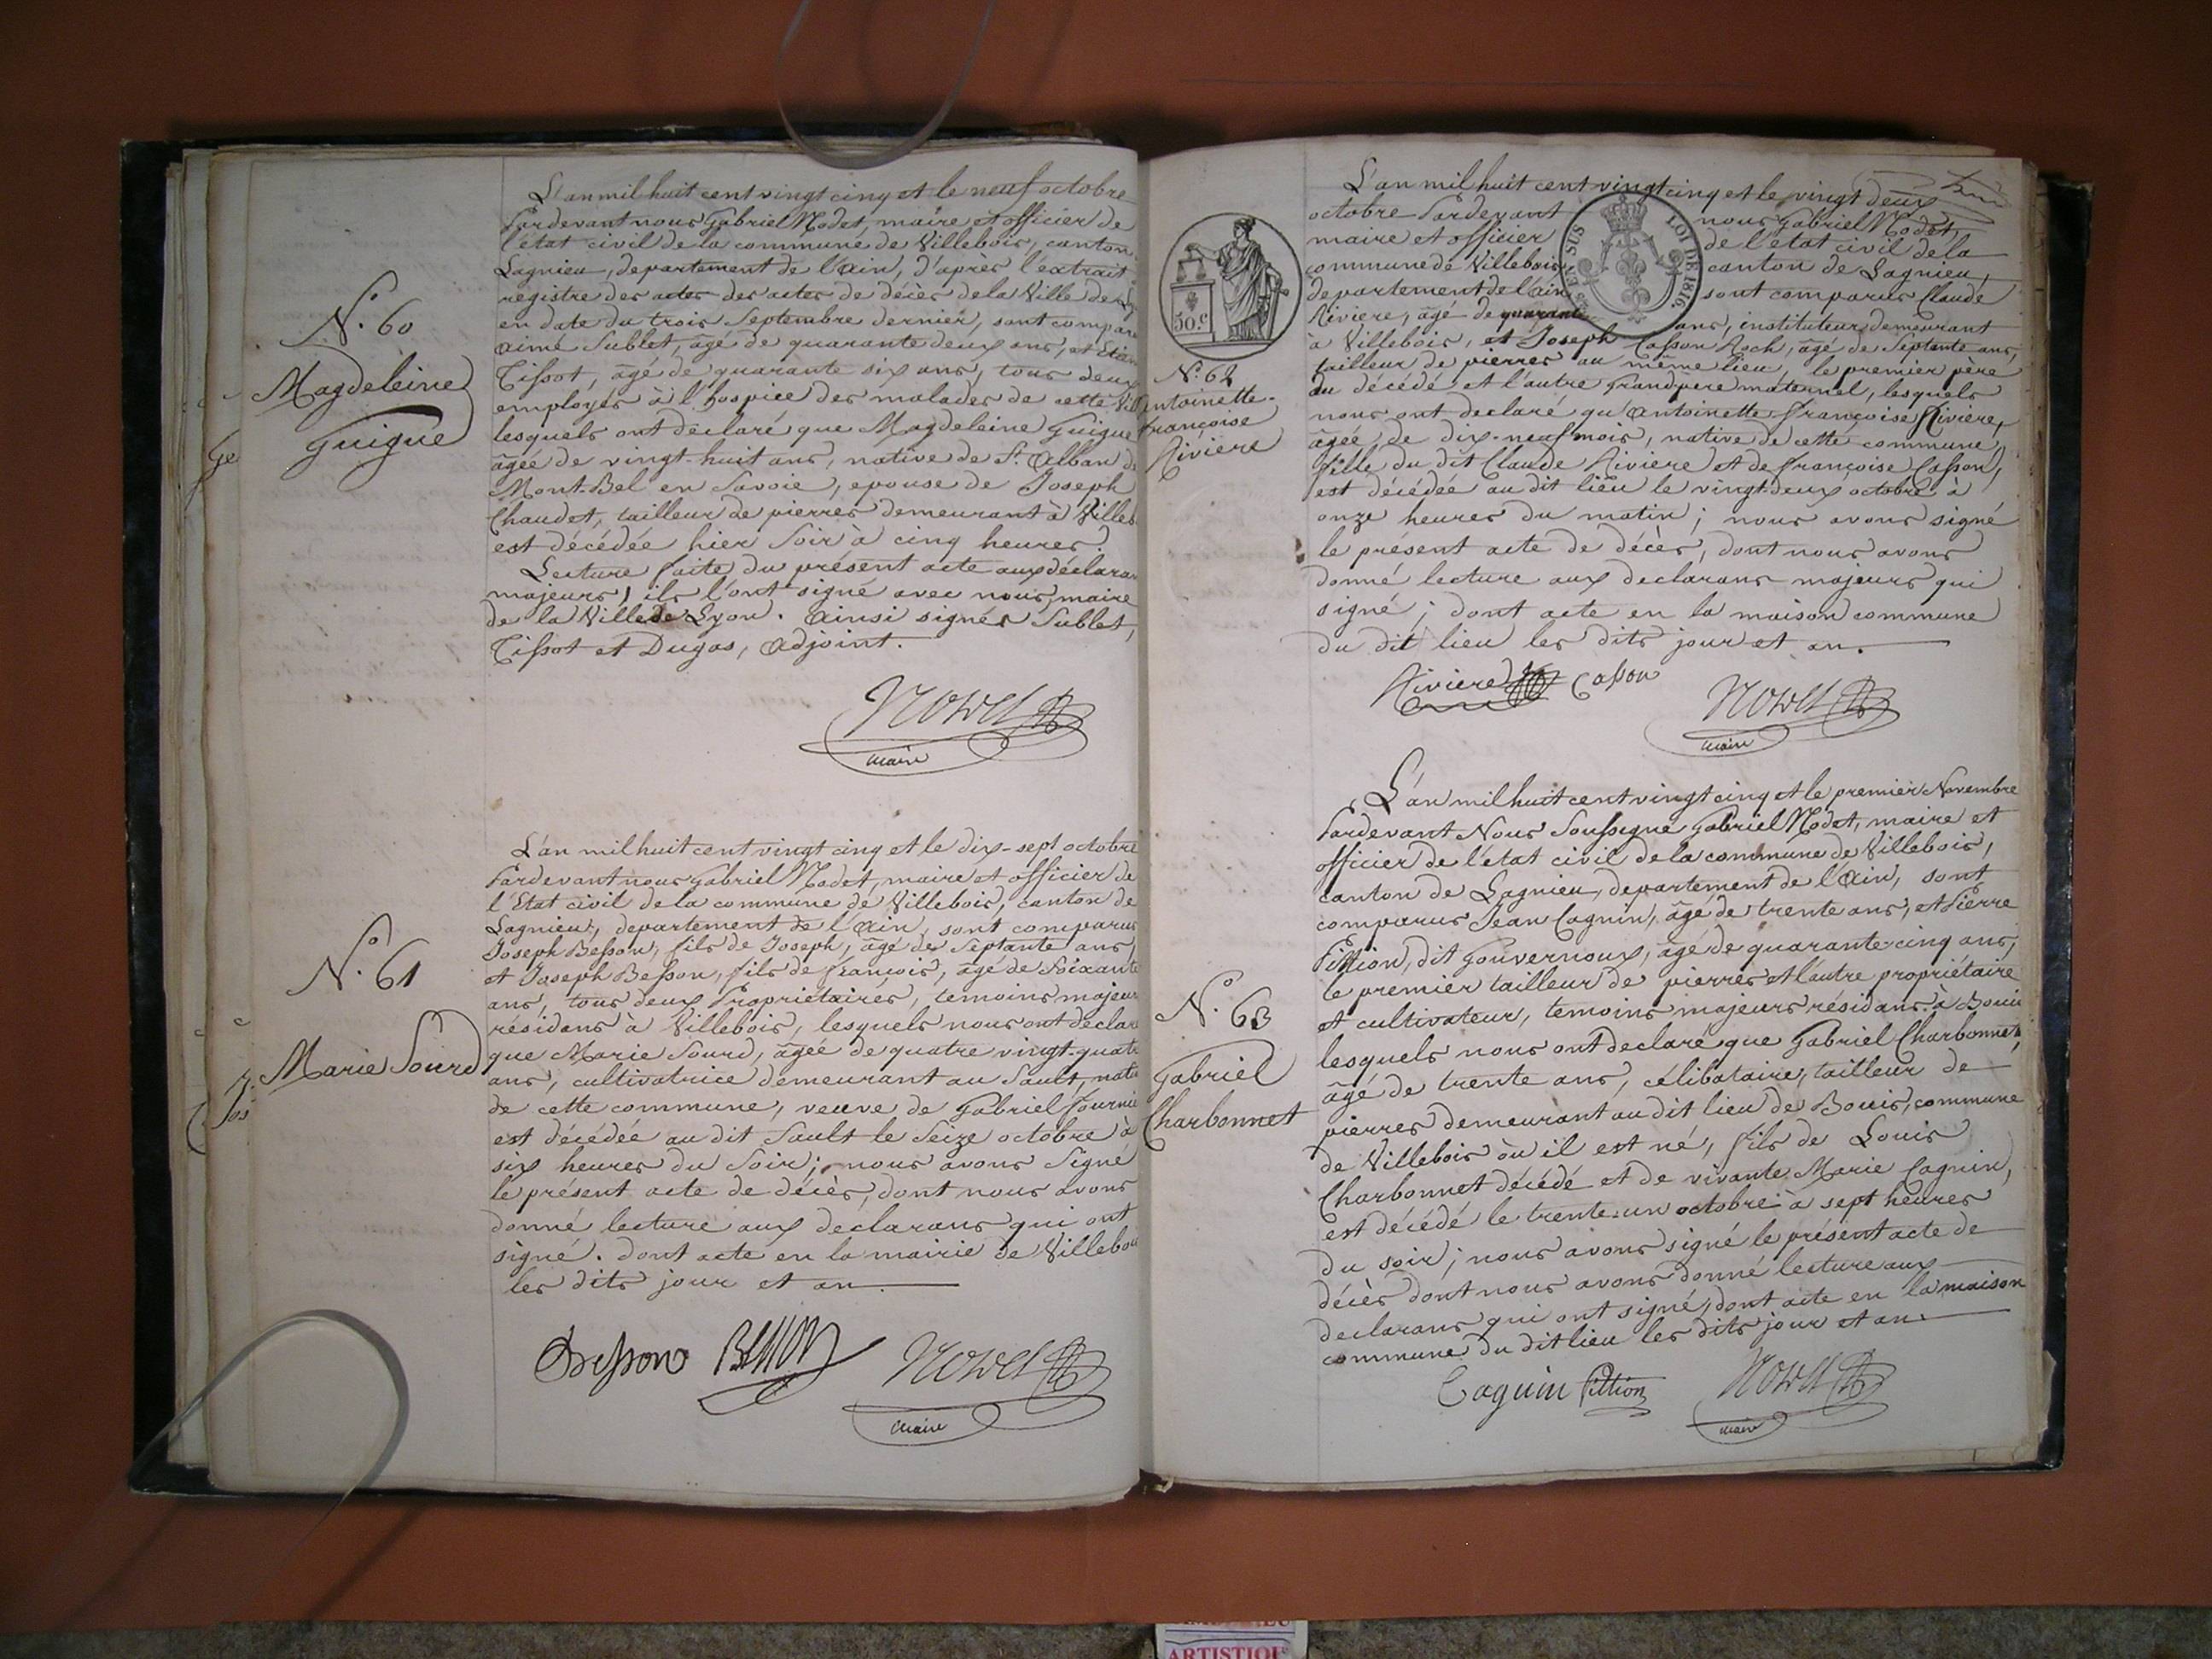 N.° 60
Magdeleine
Guigue
L'an mil huit cent vingt cinq et le neuf octobre
Pardevant nous Gabriel Nodet, maire et officier de
l'état civil de la commune de Villebois, canton
Lagnieu, departement de l'Ain, d'après l'extrait
registre des actes des actes de décès de la Ville de
en date du trois Septembre dernier, sont compar
Aimé Sublet, âgé de quarante deux ans, et Etien
Tissot, âgé de quarante six ans, tous deux
employés à l'hospice des malades de cette Vill
lesquels ont déclaré que Magdeleine Guigue
âgée de vingt-huit ans, native de St. Alban de
Mont-Bel en Savoie, epouse de Joseph
Chaudet, tailleur de pierres demeurant à Villeb
est décédée hier Soir à cinq heures.
Lecture faite du présent acte aux déclaran
majeurs, ils l'ont signé avec nous, maire
de la Ville de Lyon. Ainsi signés Sublet,
Tissot et Dugas, Adjoint.
Nodet
maire
N.° 61
Marie Sourd
L'an mil huit cent vingt cinq et le dix-sept octobre
Pardevant nous Gabriel Nodet, maire et officier de
l'Etat civil de la commune de Villebois, canton de
Lagnieu, departement de l'Ain, sont comparus
Joseph Besson, fils de Joseph, âgé de Septante ans,
et Joseph Besson, fils de françois, âgé de Soixante
ans, tous deux Propriétaires, temoins majeur
résidans à Villebois, lesquels nous ont déclaré
que Marie Sourd, âgée de quatre vingt-quatr
ans, cultivatrice demeurant au Sault, nativ
de cette commune, veuve de Gabriel fournie
est décédée au dit Sault le Seize octobre à
six heures du Soir; nous avons Signé
le présent acte de décès, dont nous avons
donné lecture aux declarans qui ont
signé. dont acte en la mairie de Villeboi
les dits jour et an.
Besson Besson Nodet
maire
50.c
EN SUS
LOI DE 1816.
N.° 62
Antoinette-
françoise
Riviere
L'an mil huit cent vingt cinq et le vingt deux
octobre Pardevant nous Gabriel Nodet,
maire et officier de l'état civil de la
commune de Villebois canton de Lagnieu,
departement de l'ain sont comparus Claude
Riviere, âgé de quarante ans, instituteur demeurant
à Villebois, et Joseph Casson Roch, âgé de Septante ans,
tailleur de pierres au même lieu, le premier père
du décédé et l'autre Grandpere maternel, lesquels
nous ont declaré qu'Antoinette françoise Riviere,
âgée de dix-neuf mois, native de cette commune,
fille du dit Claude Riviere et de françoise Casson,
est décédée au dit lieu le vingt-deux octobre à
onze heures du matin; nous avons signé
le présent acte de décès, dont nous avons
donné lecture aux declarans majeurs qui
signé; dont acte en la maison commune
du dit lieu les dits jour et an.
Riviere Casson Nodet
maire
N.° 63
Gabriel
Charbonnet
L'an mil huit cent vingt cinq et le premier Novembre
Pardevant Nous Soussigné Gabriel Nodet, maire et
officier de l'état civil de la commune de Villebois,
canton de Lagnieu, departement de l'Ain, sont
comparus Jean Cagnin, âgé de trente ans, et Pierre
Pittion, dit Gouvernoux, âgé de quarante cinq ans,
le premier tailleur de pierres et l'autre propriétaire
et cultivateur, temoins majeurs résidans à Bouis
lesquels nous ont declaré que Gabriel Charbonnet,
âgé de trente ans, célibataire, tailleur de
pierres demeurant au dit lieu de Bouis, commune
de Villebois où il est né, fils de Louis
Charbonnet décédé et de vivante Marie Cagnin,
est décédé le trente-un octobre à sept heures
du soir; nous avons signé le présent acte de
décès dont nous avons donné lecture aux
declarans qui ont signé, dont acte en la maison
commune du dit lieu les dits jour et an.
Caguin Pittion Nodet
maire
ARTISTIQUE